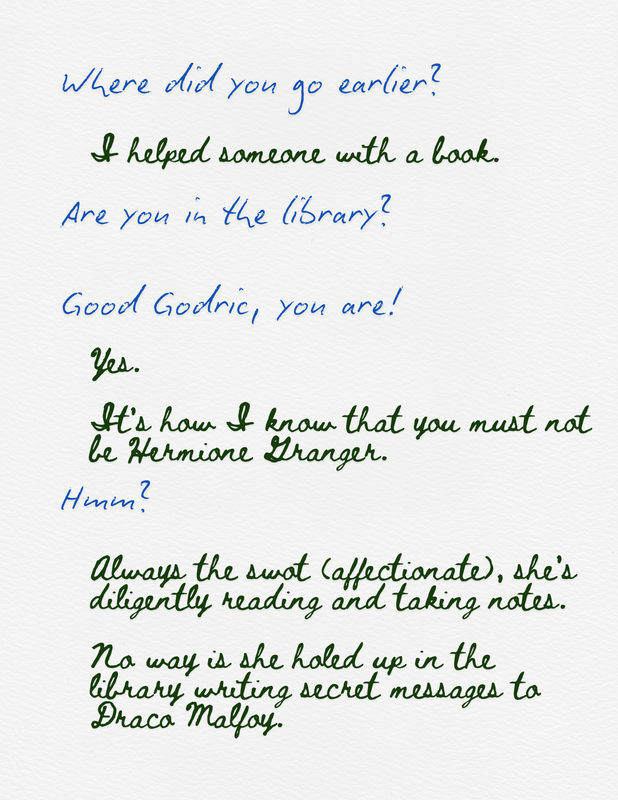 Where did you go earlier?
I helped someone with a book.
Are you in the library?
Good Godric, you are!
Yes.
It's how I know that you must not
be Hermione Granger.
Hmm?
Always the swot (affectionate), she's
diligently reading and taking notes.
No way is she holed up in the
library writing secret messages to
Draco Malfoy.